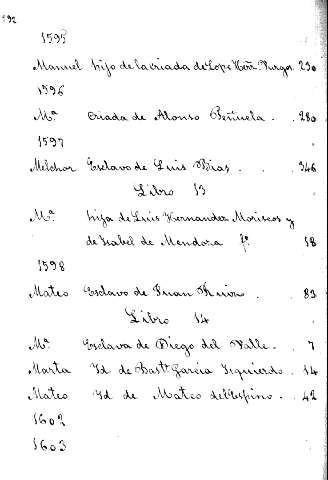 192
1595
Manuel hijo de la criada de Lope Herr. Burgos 230
1596
Mª criada de Alonso Peñuela . 280
1597
Melchor Esclavo de Luis Dias . . 346
Libro 13
Mª hija de Luis Hernandez Moriscos y
de Isabel de Mendoza fº 18
1598
Mateo Esclavo de Juan . 83
Libro 14
Mª Esclava de Diego del Valle . 7
Marta Id de Bastn Garcia Izquierdo . 14
Mateo Id de Mateo del Espino . 42
1602
1603